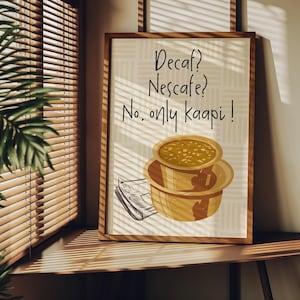 Decaf?
Nescafe?
No, only kaapi !